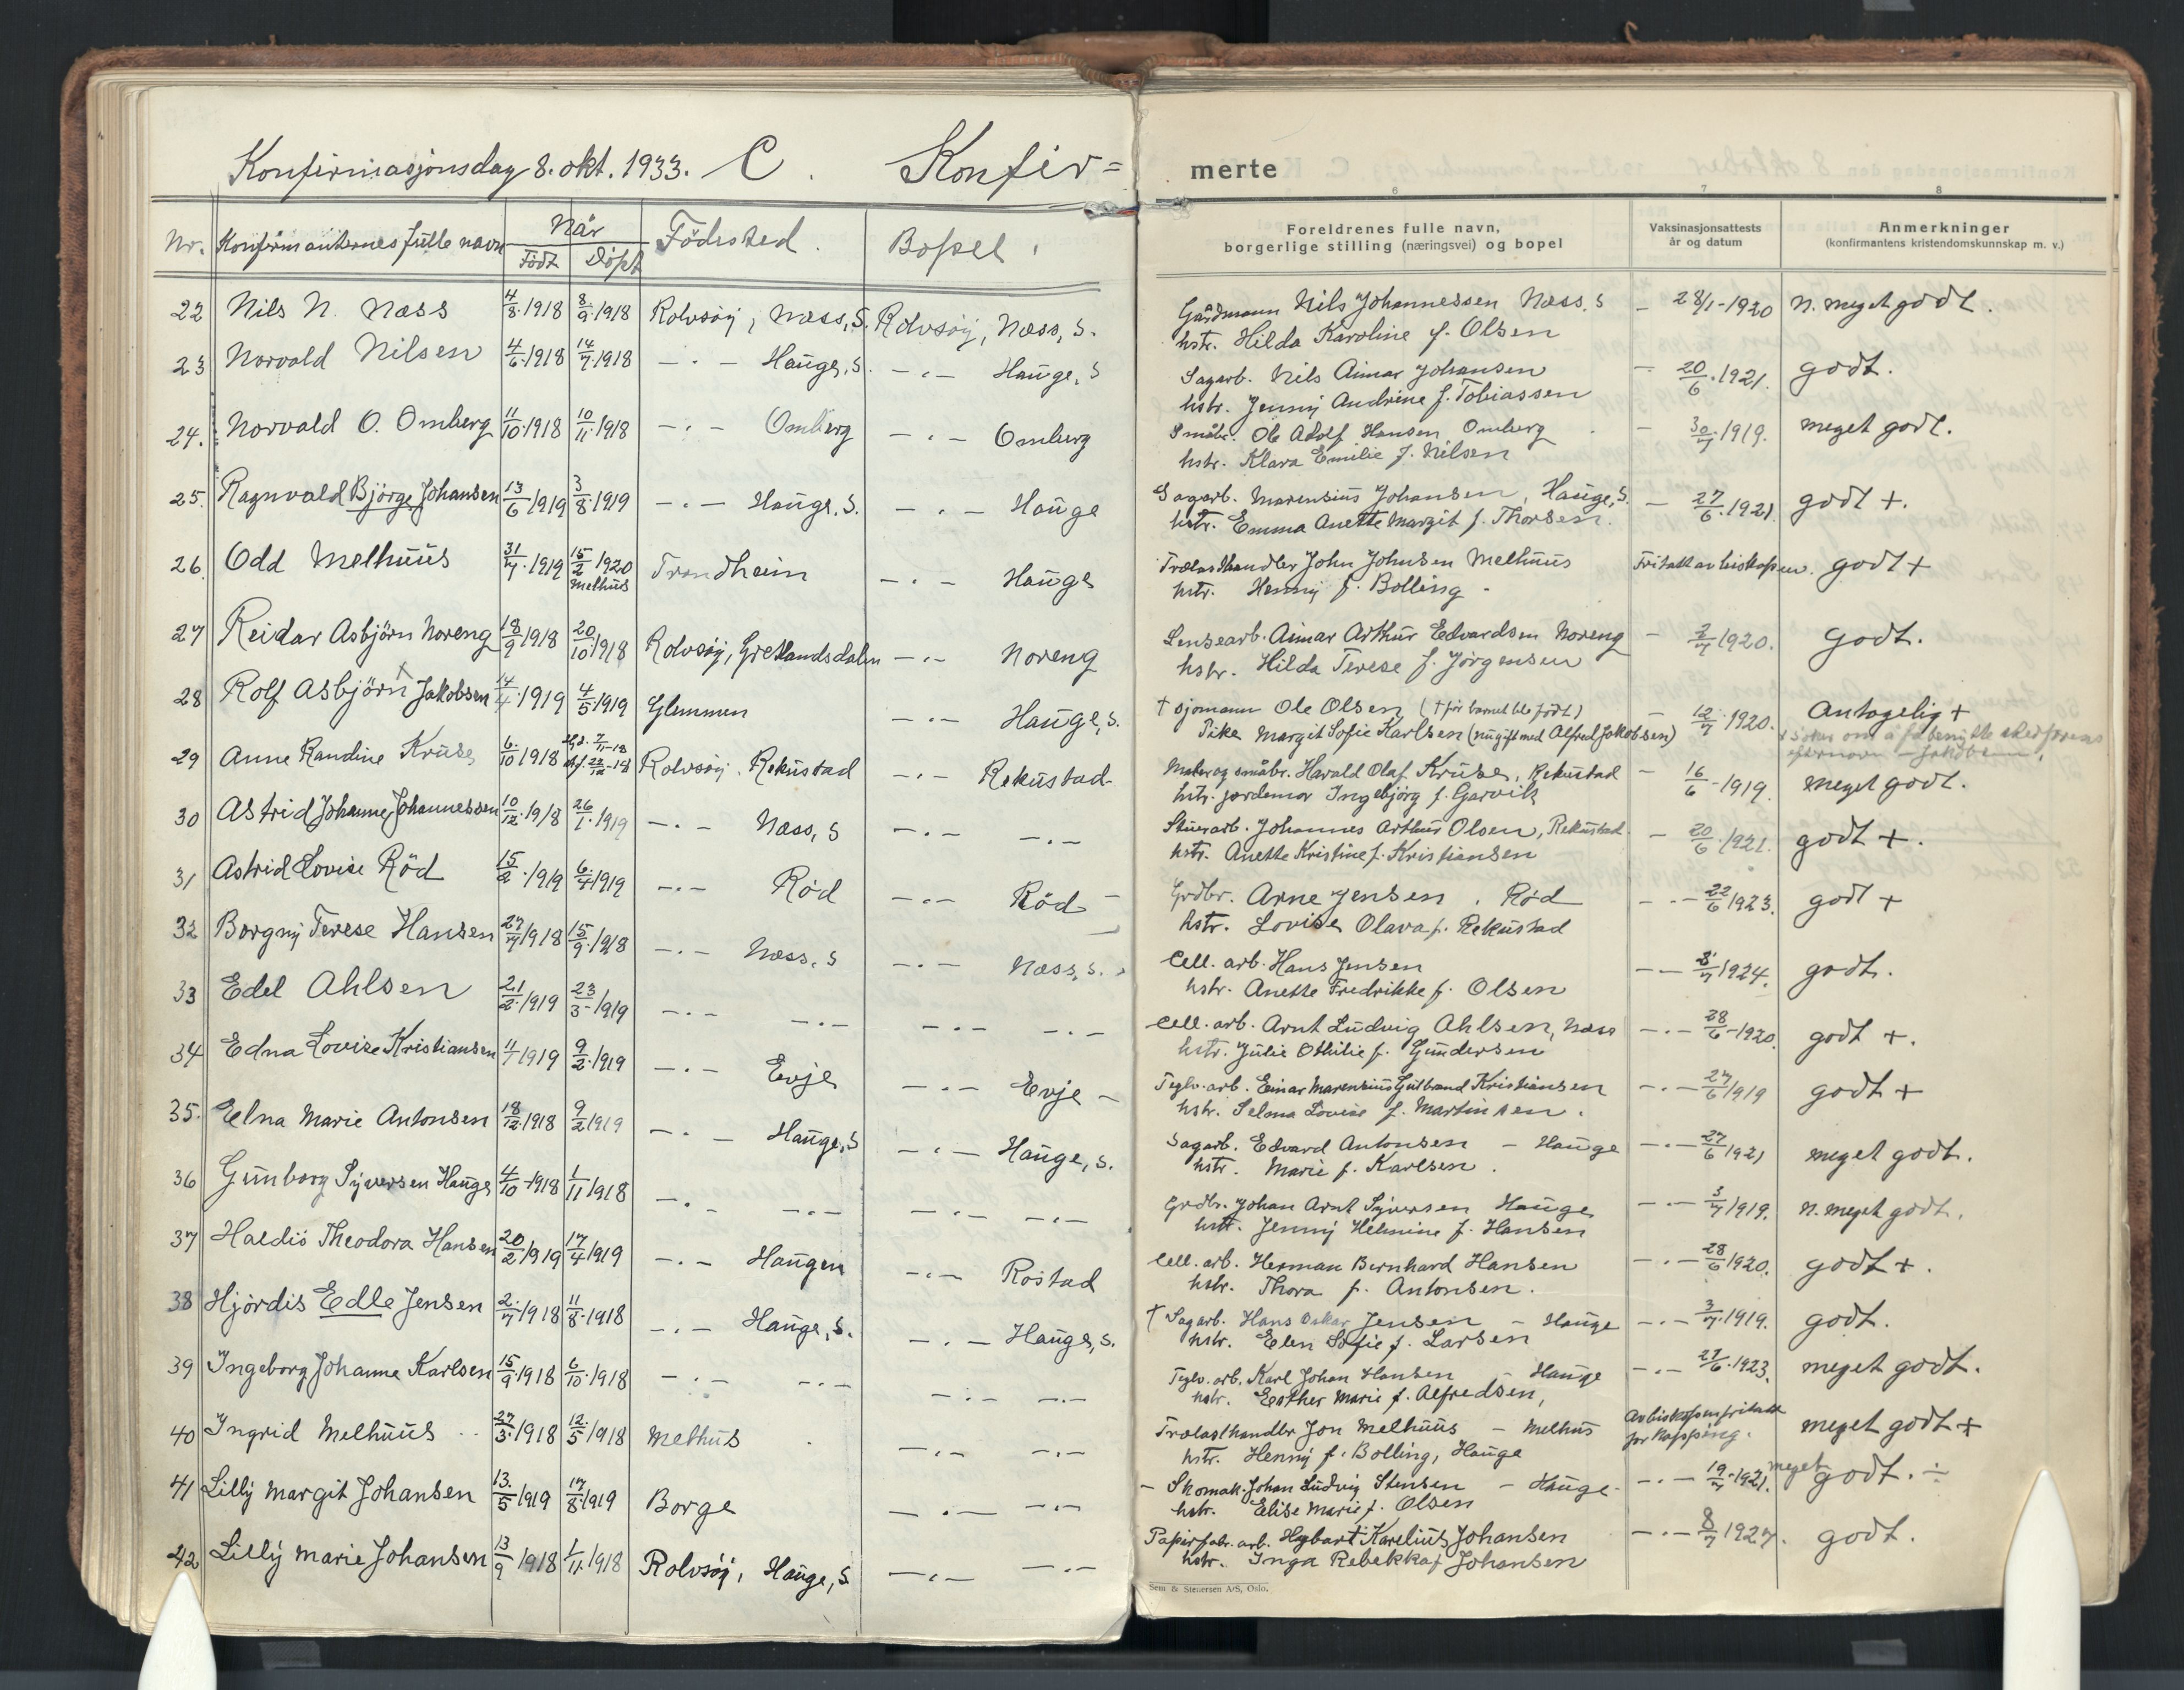 Konfirmasjonsdag 8. okt. 1933. C. Konfir=
merte
6 7 8
Nr. Konfirmanternes fulle navn När Födested. Bopel.
Födt Döpt
Foreldrenes fulle navn, borgerlige stilling (næringsvei) og bopel
Vaksinasjonsattests år og datum
Anmerkninger (konfirmantens kristendomskunnskap m. v.)
22 Nils N. Næss 4/8.1918 8/9.1918 Rolvsöy, Næss, S. Rolvsöy, Næss, S. Gårdmann Nils Johannessen Næss, S – 28/1-1920 n. meget godt.
hstr. Hilda Karoline f. Olsen
23 Norvald Nilsen 4/6.1918 14/7.1918 –·– Hauge, S. –·– Hauge, S Sagarb. Nils Aimar Johansen – 20/6.1921. godt.
hstr. Jenny Andrine f. Tobiassen
24. Norvald O. Omberg 11/10.1918 10/11.1918 –·– Omberg –·– Omberg Småbr. Ole Adolf Hansen Omberg – 30/7.1919. meget godt.
hstr. Klara Emilie f. Nilsen
25. Ragnvald Björge Johansen 13/6 1919 3/8.1919 –·– Hauge, S. –·– Hauge Sagarb. Marensius Johansen, Hauge, S. – 27/6.1921. godt +.
hstr. Emma Anette Margit f. Thorsen.
26. Odd Melhuus 31/7.1919 15/2 1920 Melhus Trondheim –·– Hauge Trælasthandler John Johnsen Melhuus Fritatt av biskopen. godt +
hstr. Henny f. Bolling -
27 Reidar Asbjörn Noreng 18/9 1918 20/10.1918 Rolvsöy, Gretlandsdalen –·– Noreng Lensearb. Aimar Arthur Edvardsen Noreng – 2/7 1920. Godt.
hstr. Hilda Terese f. Jörgensen
28 Rolf Asbjörn + Jakobsen 14/4.1919 4/5.1919 Glemmen –·– Hauge, S. † Sjömann Ole Olsen († för barnet ble födt) – 12/7 1920. Antagelig +
Pike Margit Sofie Karlsen (nu gift med Alfred Jakobsen) + söker om å få benytte stedfarens
efternavn – Jakobsen.
29 Anne Randine Kruse 6/10 1918 Rolvsöy, Rekustad –·– Rekustad Maler og småbr. Harald Olaf Kruse, Rekustad – 16/6-1919. meget godt.
hstr. jordemor Ingebjörg f. Garvik
30 Astrid Johanne Johannessen 10/12.1918 26/1.1919 –·– Næss, S –·– –·– Stuerarb. Johannes Arthur Olsen, Rekustad. – 20/6.1921. godt +.
hstr. Anette Kristine f. Kristiansen
31 Astrid Lovise Röd 15/2.1919 6/4 1919 –·– Röd –·– Röd – Grdbr. Arne Jensen, Röd –·– 22/6 1923. godt +
hstr. Lovise Olava f. Rekustad
32 Borgny Terese Hansen 27/7 1918 15/9.1918 –·– Næss, S –·– Næss, S. Cell. arb. Hans Jensen –– 8/7 1924. godt.
hstr. Anette Fredrikke f. Olsen
33 Edel Ahlsen 21/2.1919 23/3-1919 –·– –·– –·– –·– Cell. arb. Arnt Ludvig Ahlsen, Næss –·– 28/6-1920. godt +.
hstr. Julie Othilie f. Gundersen
34 Edna Lovise Kristiansen 11/1 1919 9/2.1919 –·– Evje –·– Evje – Teglv. arb. Einar Marensius Gulbrand Kristiansen –·– 27/6 1919 godt +
hstr. Selma Lovise f. Martinsen.
35. Elna Marie Antonsen 18/12.1918 9/2 1919 –·– Hauge, S –·– Hauge, S. Sagarb. Edvard Antonsen – Hauge –·– 27/6 1921 meget godt.
hstr. Marie f. Karlsen.
36 Gunborg Syversen Hauge 4/10-1918 1/11 1918 –·– –·– –·– –·– Grdbr. Johan Arnt Syversen Hauge –·– 3/7 1919. n. meget godt.
hstr. Jenny Helmine f. Hansen
37 Haldis Theodora Hansen 20/2 1919 17/4 1919 –·– Haugen –·– Rostad Cell. arb. Herman Bernhard Hansen –·– 28/6 1920. godt +.
hstr. Thora f. Antonsen.
38 Hjördis Edle Jensen 2/7 1918 11/8.1918 –·– Hauge, S. –·– Hauge, S. † Sagarb. Hans Oskar Jensen – Hauge –·– 3/7.1919. godt.
hstr. Elen Sofie f. Larsen
39 Ingeborg Johanne Karlsen 15/9.1918 6/10.1918 –·– –·– –·– –·– Teglv. arb. Karl Johan Hansen – Hauge –·– 27/6.1923. meget godt.
hstr. Esther Marie f. Alfredsen,
40 Ingrid Melhuus 27/3.1918 12/5 1918 Melhus –·– –·– Trælasthandler Jon Melhuus – Melhus Av biskopen fritatt for kopping. meget godt +
hstr. Henny f. Bolling, Hauge
41 Lilly Margit Johansen 13/5 1919 17/8.1919 Borge –·– –·– – Skomak. Johan Ludvig Stensen – Hauge –·– 19/7-1921. meget godt. ÷
hstr. Elise Marie f. Olsen
42 Lilly Marie Johansen 13/9 1918 1/11.1918 Rolvsöy, Hauge, S –·– –·– Papirfabr. arb. Hybart Karelius Johansen –·– 8/7 1927. godt.
hstr. Inga Rebekka f. Johansen
Sem & Stenersen A/S, Oslo.